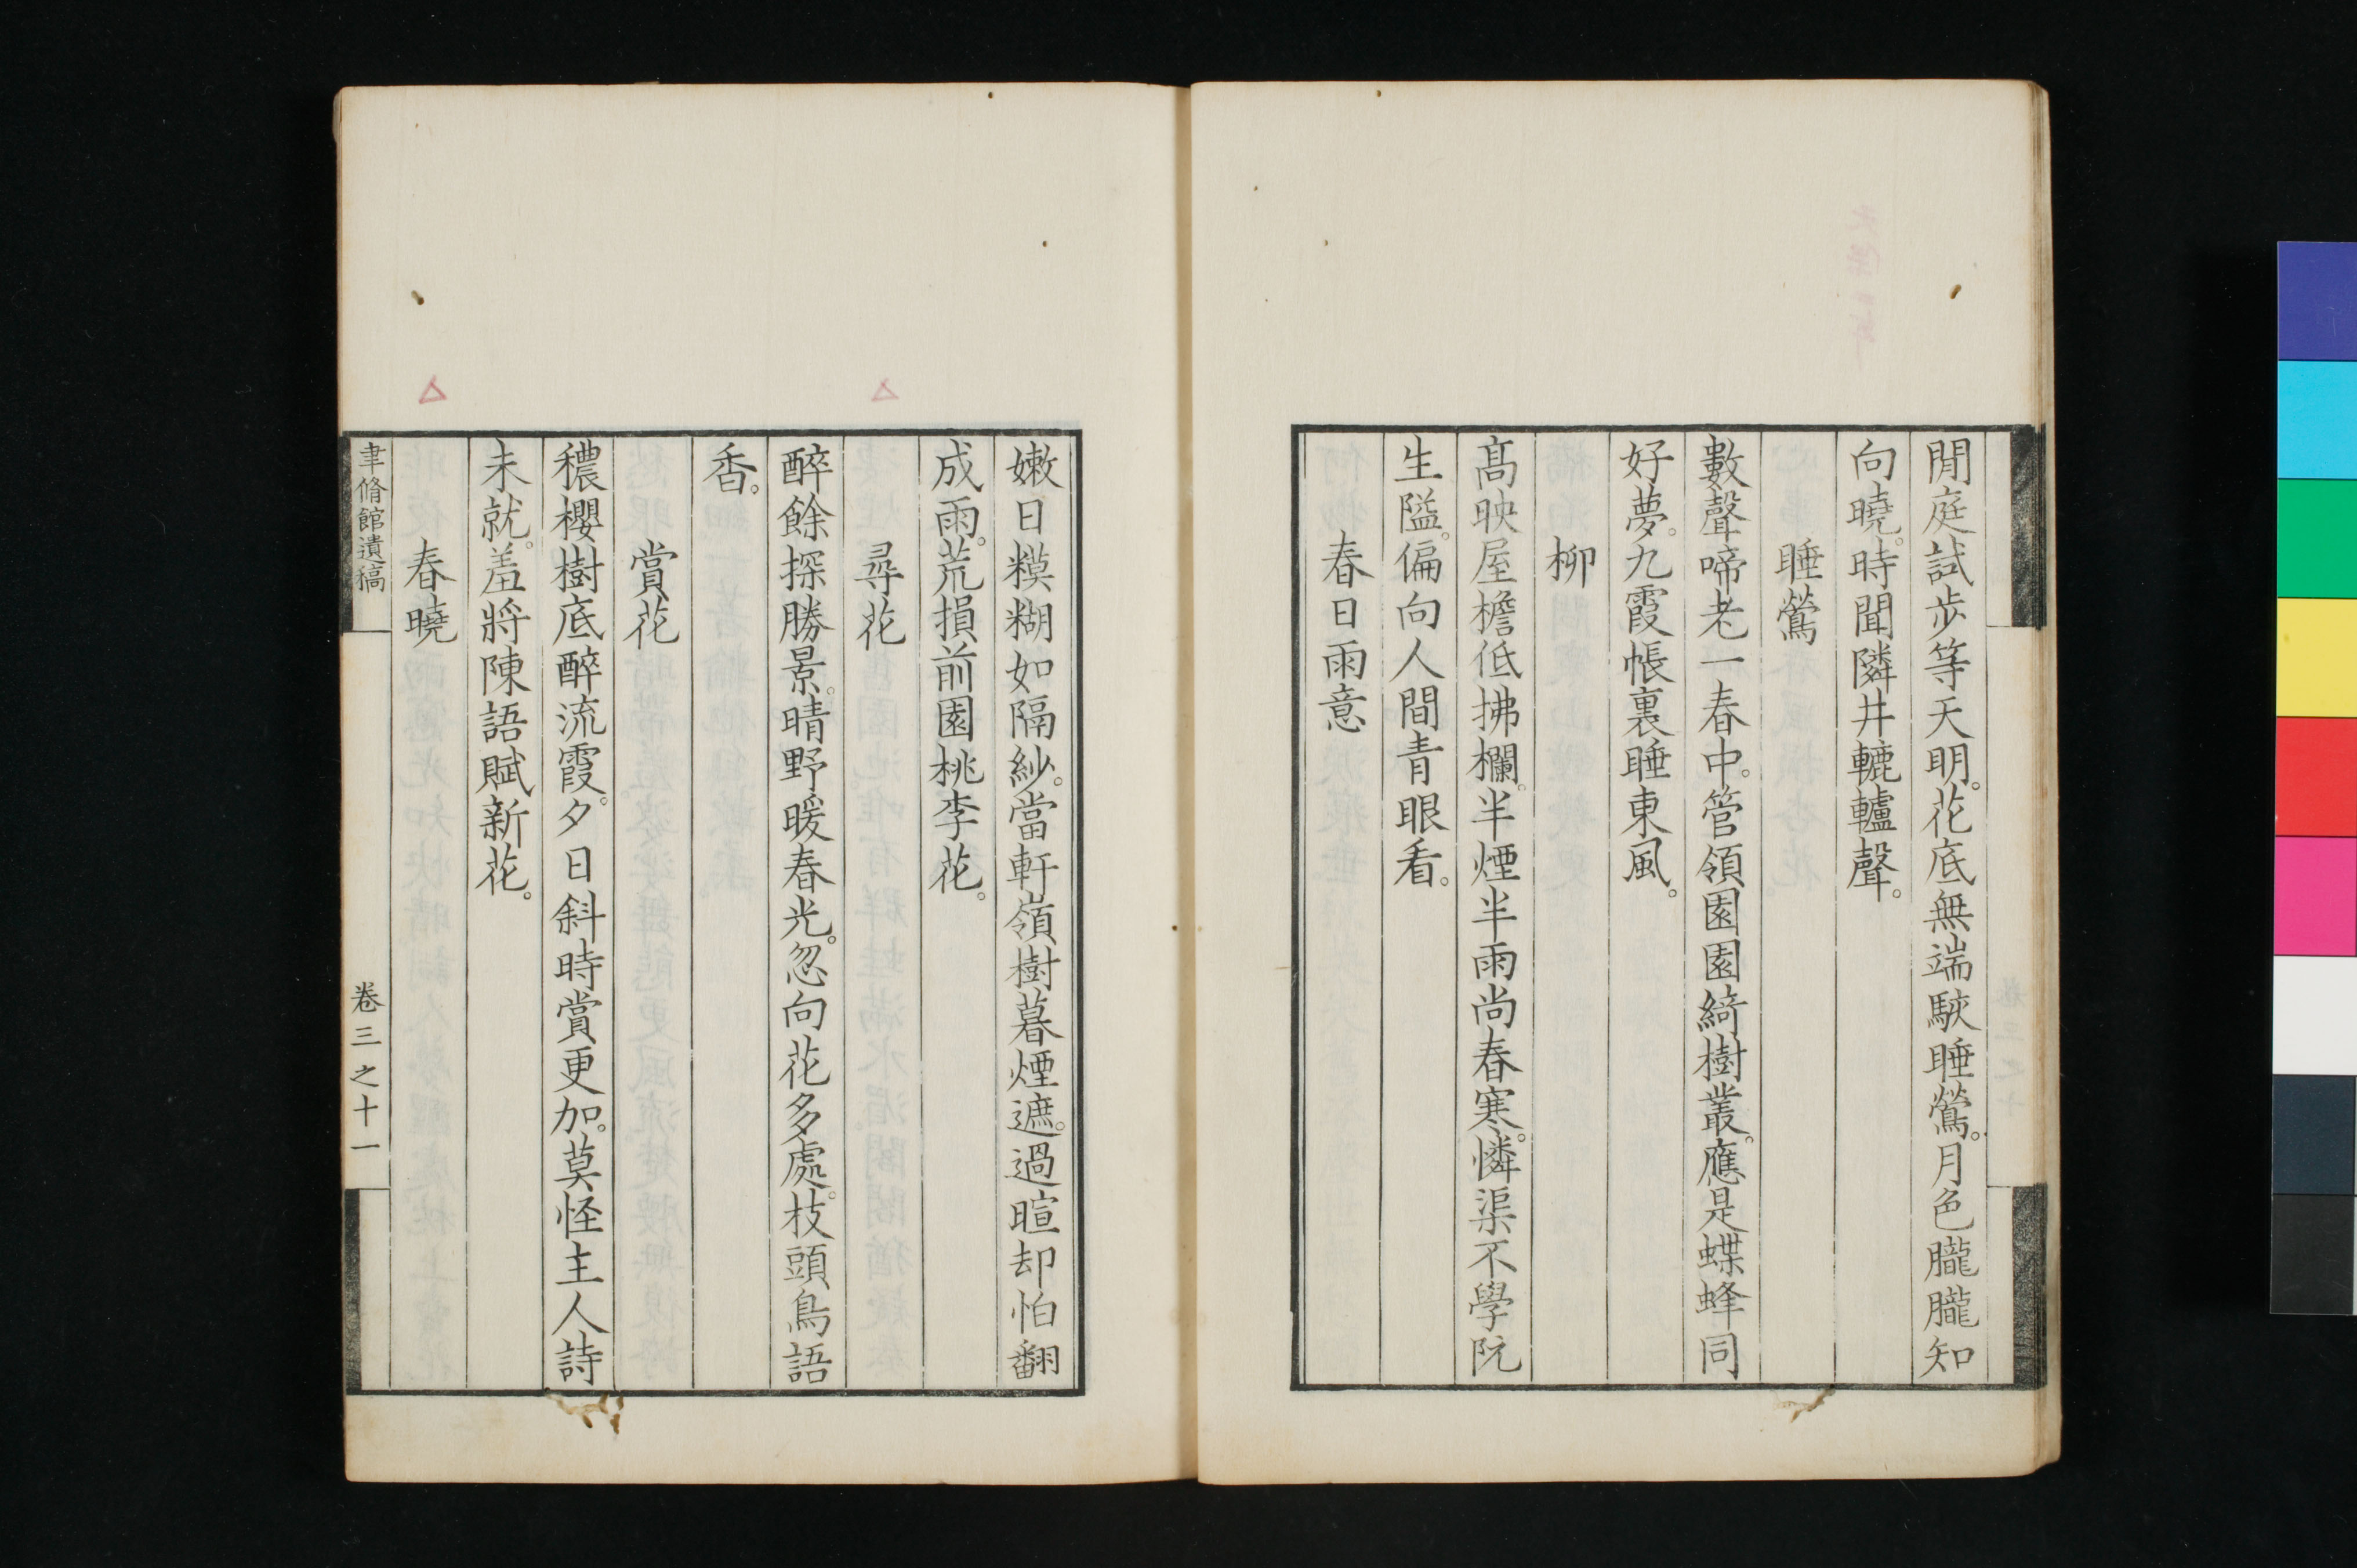 閒庭試步等天明。花底無端駛睡鶯。月色朧朧知
向曉。時聞隣井轆轤聲。
睡鶯
數聲啼老一春中。管領園園綺樹叢。應是蝶蜂同
好夢。九霞帳裏睡東風。
柳
高映屋檐低拂欄。半煙半雨尚春寒。憐渠不學阮
生隘。偏向人間青眼看。
春日雨意
嫩日糢糊如隔紗。當軒嶺樹暮煙遮。過暄却怕翻
成雨。荒損前園桃李花。
尋花
醉餘探勝景。晴野暖春光。忽向花多處。枝頭鳥語
香。
賞花
穠櫻樹底醉流霞。夕日斜時賞更加。莫怪主人詩
未就。羞將陳語賦新花。
春曉
聿脩館遺稿
卷三之十一